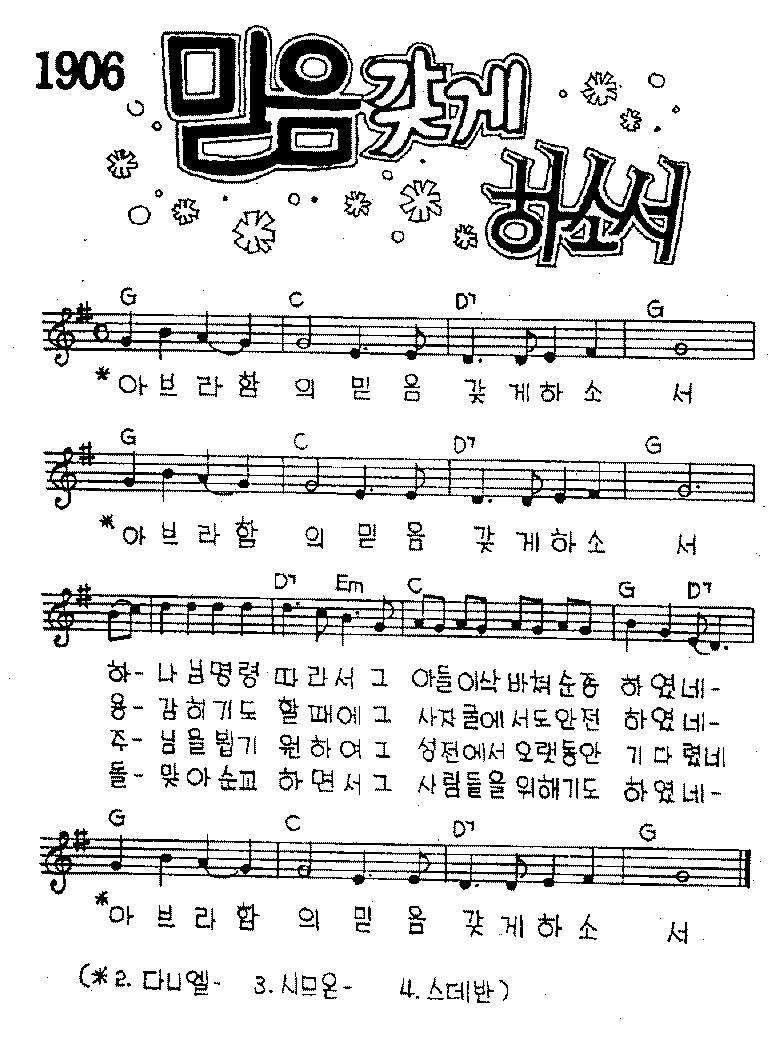 1906
믿음갖게
하소서
G C D7 G
*아브라함의 믿음 갖게하소서
G C D7 G
*아브라함의 믿음 갖게하소서
D7 Em C G D7
하-나님명령 따라서그 아들이삭바쳐순종 하였네-
용-감히기도 할때에그 사자굴에서도안전 하였네-
주-님을뵙기 원하여그 성전에서오랫동안 기다렸네
돌-맞아순교 하면서그 사람들을위해기도 하였네-
G C D7 G
*아브라함의 믿음 갖게하소서
(*2. 다니엘- 3. 시므온- 4. 스데반)